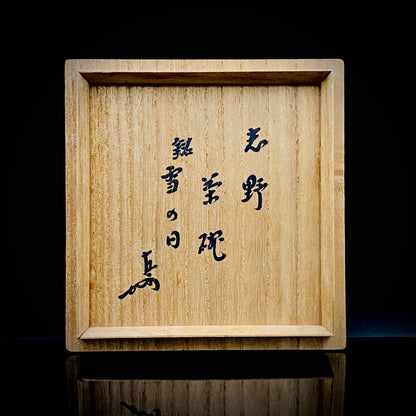 志野
茶碗
銘
雪の日